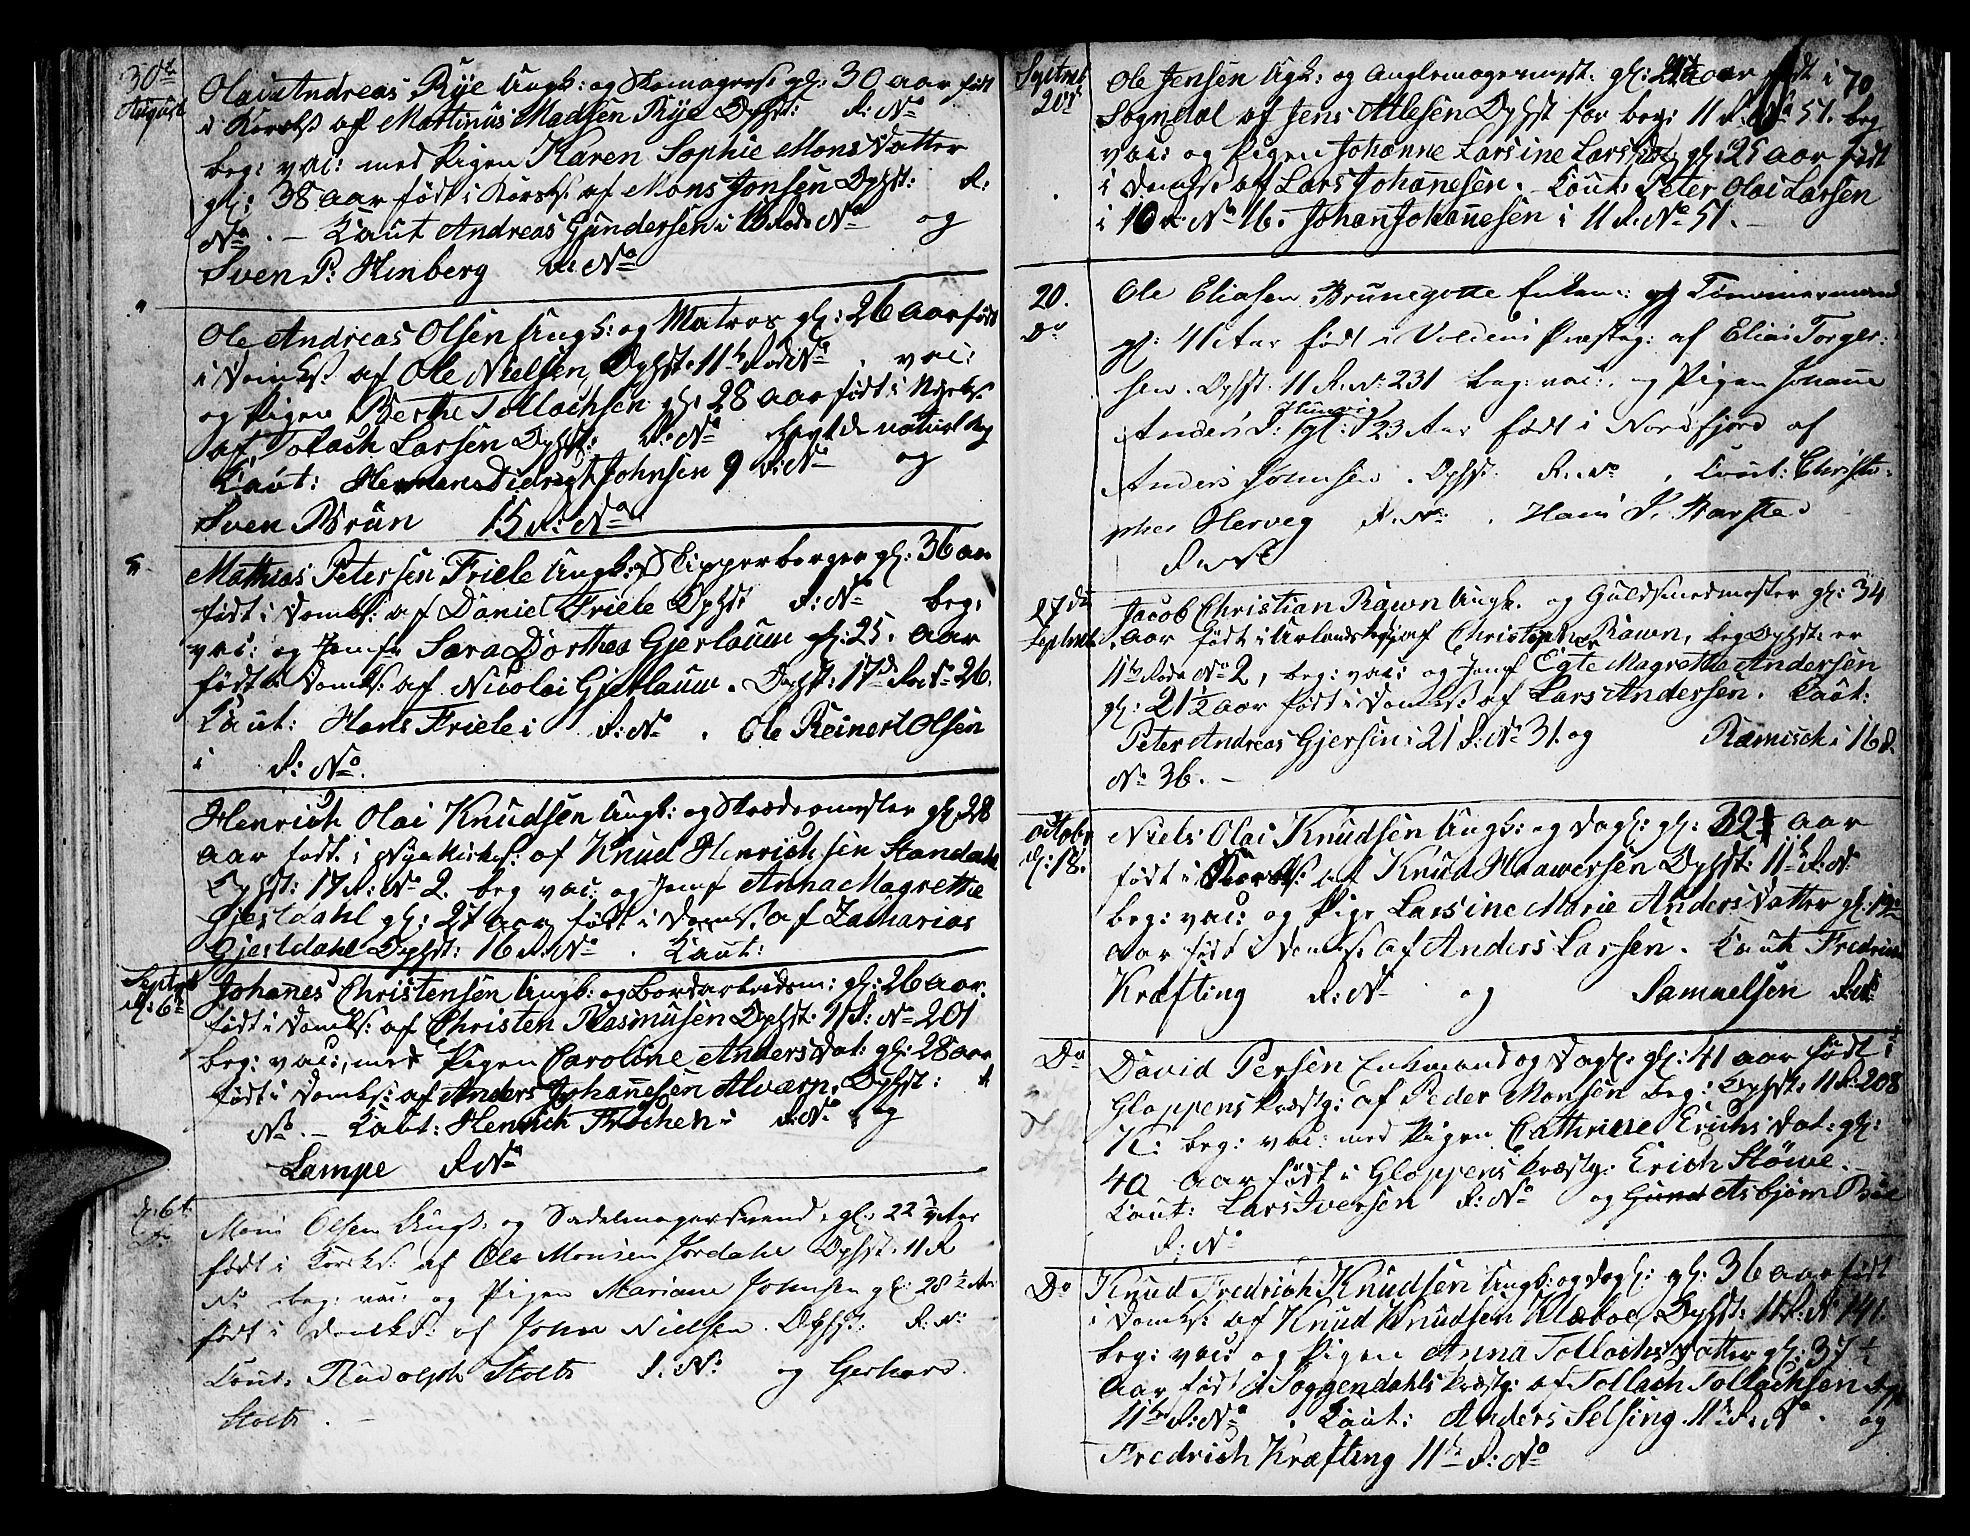 30te
August
Olai Andreas Rye Ungk: og Skomagers: gl: 30 aar født
i Korsk: af Martinus Madsen Rye Ophst: R: No
beg: vac: med Pigen Karen Sophie Monsdatter
gl: 38 aar født i Korsk: af Mons Jonsen Ophst: R:
No . – Caut Andreas Gundersen i Rode No og
Sven P: Hinberg R: No
"
Ole Andreas Olsen Ungk: og Matros gl: 26 aar født
i Domks: af Ole Nielsen, Ophst: 11te Rode No . vac:
og Pigen Berthe Tollachsen gl: 28 aar født i Nyeks:
af Tolach Larsen Ophst: R: No naturl
Caut: Hermans Johnsen 9 R: No og
Sven Brun 15 R: No
Mathias Petersen Friele Ungk: Skipperborger gl: 36 aar
født i Domks: af Daniel Friele Ophst R: No beg:
vac: og Jomf: Sara Dorthea Gjerlauw gl: 25. aar
født i Domks: af Nicolai Gjerlauw. Ophst: 17de R: No 26.
Caut: Hans Friele i R: No . Ole Reinert Olsen
i R: No.
Henrich Olai Knudsen Ungk: og Skrædermester gl. 28
aar født i Nyekirkes: af Knud Henrichsen Standahl
Ophst: 17 R: No 2. beg vac: og Jomf Anna Magrethe
Gjesldahl gl: 27 aar født i Domks: af Zacharias
Gjesldahl Ophst: 16 R: No . Caut:
Septbr
d: 6te
Johanes Christensen Ungk: og Bordarbeidsm: gl: 26 aar.
født i Domks: af Christen Rasmusen Ophst: 11 R: No 201
beg: vac:, med Pigen Caroline Andersdat: gl: 28 aar
født i Domks: af Anders Johanesen Alværn. Ophst: R
No . – Caut: Henrich Frochen i R: No . og
Lampe R No
d: 6t
Do
Mons Olsen Ungk: og Sadelmagersvend, gl: 22 1/2 Aar
født i Korsks: af Ole Monsen Jordahl Ophst: 11 R
No beg: vac: og Pigen Mariane Johnsen gl: 28 1/2 Ar
født i Domks: af John Nielsen. Ophst: R: No:
Caut: Rudolph Stolts R: No: og Gerhard
Stolts . –
Septbr
20de
Ole Jensen Ugk: og gl: aar født i 70
Sogndal af Jens Atlesen Ophst for beg: 11 R: No 51. beg
vac: og Pigen Johanne Larsine Larsdat: gl: 25 aar født
i Domks: af Lars Johanesen. – Caut: Peter Olai Larsen
i 10 R: No 16. Johan Johanesen i 11 R: No 51. –
20.
Do
Ole Eliasen Brunegotte Enkem: og Tømmermand
gl: 41 Aar født i Voldens Præsteg: af Elias Torger:
sen. Ophst. 11 R. No: 231 beg: vac:, og Pigen Johane
Andersd: gl: 23 Aar født i Nordfjord af
Anders Johnsen . Ophst: R. No , Caut: Christo:
pher Herveg R. No: . Hans J. Harsted –
R. No
27de
Septembr
Jacob Christian Rawn Ungk. og Guldsmedmester gl: 34
aar født i Urlands af Christopher Rawn, beg Ophst: er
11te Rode No 2, beg: vac: og Jomf Egte Magrethe Andersen
gl: 21 1/2 aar født i Domks: af Lars Andersen. Caut:
Peter Andreas Gjersen i 21 R: No 31. og Ramisch i 16 R.
No 36. –
October
d: 18.
Niels Olai Knudsen Ungk: og Dagl: gl: 32 aar
født i Korsks: af Knud Haawersen Ophst: 11te R: No
beg: vac: og Pige Larsine Marie Andersdatter gl: 19
aar født i Domks: af Anders Larsen. Caut: Fredrich
Kræfting R: No og Samuelsen R: No
Do
David Persen Enkemand og Dagl: gl: 41 aar født i
Gloppens Præstg: af Peder Monsen beg: Ophst: 11 R: 208
N: beg: vac: med Pigen Cathrine Erichsdat: gl:
40 aar født i Gloppens Præstg: Erich Støwe.
Caut: Lars Iversen R: No og Asbjørn Bøe
R: No
Do
Knud Fredrich Knudsen Ungk: og Dagl: gl: 36 aar født
i Domks: af Knud Knudsen Klæboe, Ophst: 11 R: No 141.
beg: vac: og Pigen Anna Tollachsdatter gl: 37 1/2
aar født i Soggendahls Præstg: af Tollach Tollachsen
11te R: No . Caut: Anders Selsing 11te R: No . og
Fredrich Kræfting 11te R: No